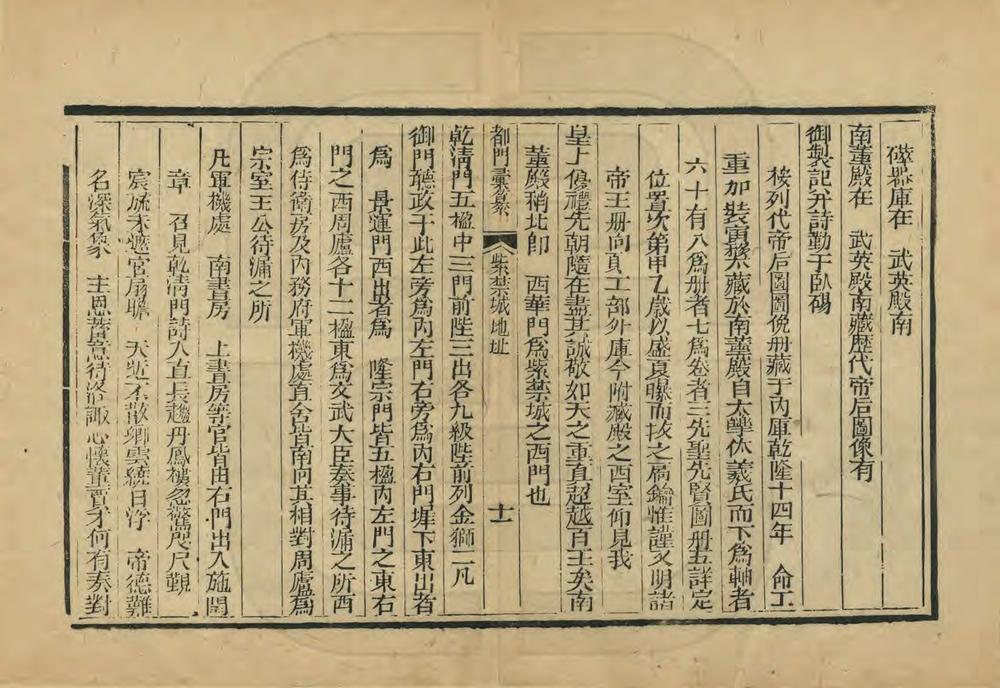 磁器庫在　武英殿南
南薰殿在　武英殿南藏歷代帝后圖像有
御製記并詩勒于臥碣
按列代帝后圖圖俛册藏于內庫乾隆十四年　命工
重加裝寅繇六藏於南薰殿自太皥伏羲氏而下為軸者
六十有八為册者七為卷者三先聖先賢圖册五詳定
位置次第甲乙歲以盛夏曝而拔之扃鑰惟謹又明諸
帝王册向貝工部外庫今附藏殿之西室仰見我
皇上優禮先朝隨在盡其誠敬如天之重直超越百王矣南
薰殿稍北即　西華門為紫禁城之西門也
都門彙纂　紫禁城地址　十一
乾清門五楹中三門前陛三出各九級陛前列金獅二凡
御門聽政于此左旁為內左門右旁為內右門墀下東出者
為　景運門西出者為　隆宗門皆五楹內左門之東右
門之西周廬各十二楹東為文武大臣奏事待漏之所西
為侍衛房及內務府軍機處直舍皆南向其相對周廬為
宗室王公待漏之所
凡軍機處　南書房　上書房等官皆由右門出入施閏
章　召見乾清門詩入直長趨丹鳳樓忽驚咫尺覲
宸旒未遮官扇瞻　天近不散卿雲繞日浮　帝德難
名深氣象　主恩著意待洛諏心懷董賈才何有奏對